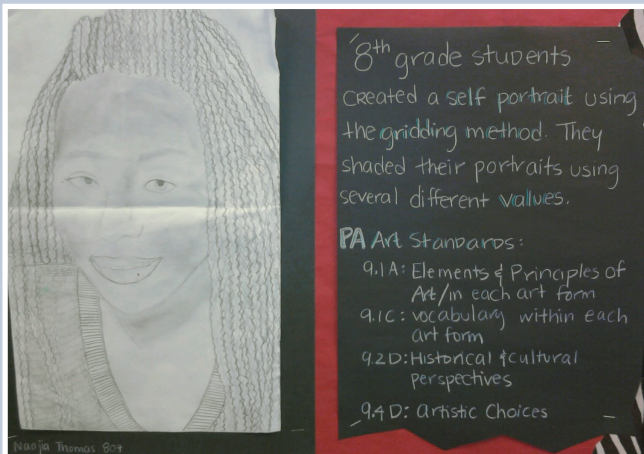 8th grade students
created a self portrait using
the gridding method. They
shaded their portraits using
several different values.
PA Art Standards:
9.1A: Elements & Principles of
Art/in each art form
9.1C: vocabulary within each
art form
9.2D: Historical & cultural
perspectives
9.4D: Artistic Choices
Naajia Thomas 807